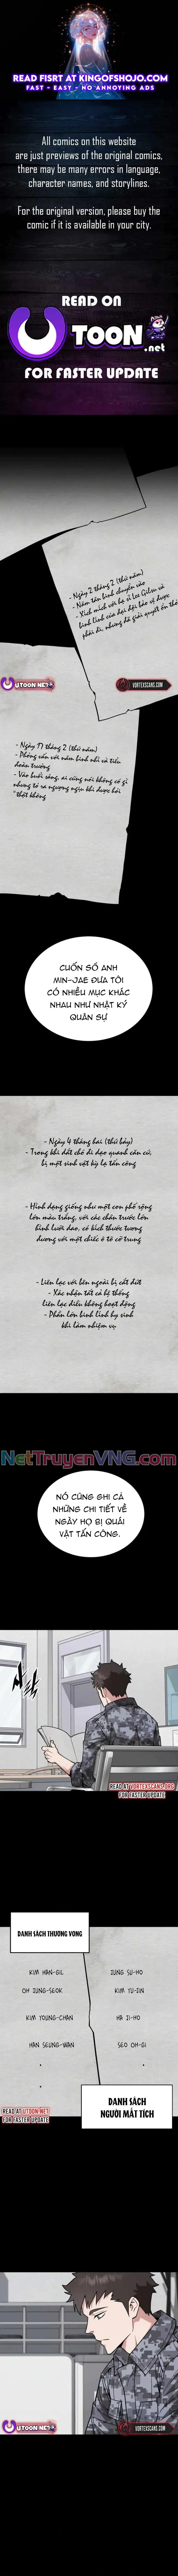 READ FISRT AT KINGOFSHOJO.COM
FAST - EASY - NO ANNOYING ADS
All comics on this website
are just previews of the original comics,
there may be many errors in language,
character names, and storylines.
For the original version, please buy the
comic if it is available in your city.
READ ON
TOON.net
FOR FASTER UPDATE
- Ngày 2 tháng 2 (thứ năm)
- Năm tân binh chuyển vào
- Xích mích với hạ sĩ
binh lính của đại đội bảo vệ được
phái đi, nhưng đã giải quyết ổn thỏa
UTOON.NET
VORTEXSCANS.COM
- Ngày 17 tháng 2 (thứ năm)
- Phỏng vấn với năm binh nhì và tiểu
đoàn trưởng
- Vẫn buổi sáng, ai cũng nói không có gì
nhưng tỏ ra ngượng nghịu khi được hỏi
"thật không
CUỐN SỔ ANH
MIN-JAE ĐƯA TÔI
CÓ NHIỀU MỤC KHÁC
NHAU NHƯ NHẬT KÝ
QUÂN SỰ
- Ngày 4 tháng hai (thứ bảy)
- Trong khi dắt chó đi dạo quanh căn cứ,
bị một sinh vật kỳ lạ tấn công
- Hình dạng giống như một con
lớn màu trắng, với các chân trước lớn
hình lưỡi dao, có kích thước tương
đương với một chiếc ô tô cỡ trung
- Liên lạc với bên ngoài bị cắt đứt
- Xác nhận tất cả hệ thống
liên lạc đều không hoạt động
- Phần lớn binh lính hy sinh
khi làm nhiệm vụ
NetTruyenVNG.com
NÓ CŨNG GHI CẢ
NHỮNG CHI TIẾT VỀ
NGÀY HỌ BỊ QUÁI
VẬT TẤN CÔNG.
READ AT VORTEXSCANS.ORG
FOR FASTER UPDATE
DANH SÁCH THƯƠNG VONG
KIM HAN-GIL
JUNG SU-HO
OH JUNG-SEOK
KIM YU-JIN
KIM YOUNG-CHAN
HA JI-HO
HAN SEUNG-WAN
SEO OH-GI
DANH SÁCH
NGƯỜI MẤT TÍCH
READ AT UTOON.NET
FOR FASTER UPDATE
UTOON.NET
VORTEXSCANS.COM